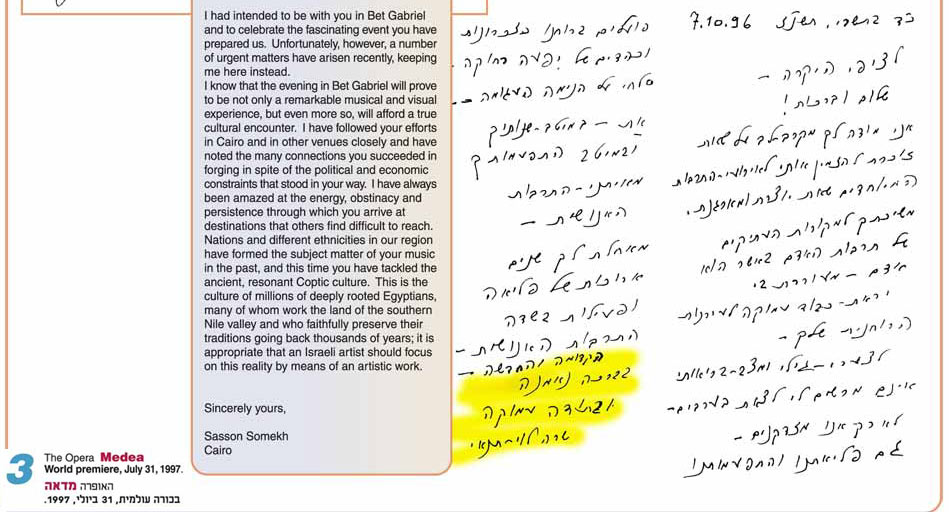 I had intended to be with you in Bet Gabriel
and to celebrate the fascinating event you have
prepared us. Unfortunately, however, a number
of urgent matters have arisen recently, keeping
me here instead.
I know that the evening in Bet Gabriel will prove
to be not only a remarkable musical and visual
experience, but even more so, will afford a true
cultural encounter. I have followed your efforts
in Cairo and in other venues closely and have
noted the many connections you succeeded in
forging in spite of the political and economic
constraints that stood in your way. I have always
been amazed at the energy, obstinacy and
persistence through which you arrive at
destinations that others find difficult to reach.
Nations and different ethnicities in our region
have formed the subject matter of your music
in the past, and this time you have tackled the
ancient, resonant Coptic culture. This is the
culture of millions of deeply rooted Egyptians,
many of whom work the land of the southern
Nile valley and who faithfully preserve their
traditions going back thousands of years; it is
appropriate that an Israeli artist should focus
on this reality by means of an artistic work.
Sincerely yours,
Sasson Somekh
Cairo
3
The Opera Medea
World premiere, July 31, 1997.
האופרה מדאה
בכורה עולמית, 31 ביולי, 1997.
כ"ד בתשרי, תשנ"ז 7.10.96
לציפי היקרה –
שלום וברכות!
אני מודה לך מקרב לב על שאת
זוכרת להזמין אותי לאירועי-התרבות
המיוחדים שאת יוצרת ומארגנת.
משיכתך למקורות העתיקים
של תרבות האדם באשר הוא
אדם – מעוררת בי
יראת-כבוד עמוקה לעירנות
הרוחנית שלך –
לצערי – גילי ומצב-בריאותי
אינם מרשים לי לצאת בערבים –
לא רק אנו מזדקנים –
גם פליאתנו והתפעמותנו
פועלים ברוחנו כזכרונות
וכהדים של יפעה רחוקה.
סלחי על הנימה העגומה –
את – במיטב-שנותיך
ובמיטב התפעמותך
התרבות
האנושית –
מאחלת לך שנים
ארוכות של פליאה
ופעילות בשדה
התרבות האנושית –
הקדומה והחדשה –
בברכה נאמנה
ובתודה עמוקה
שרה לוי-תנאי